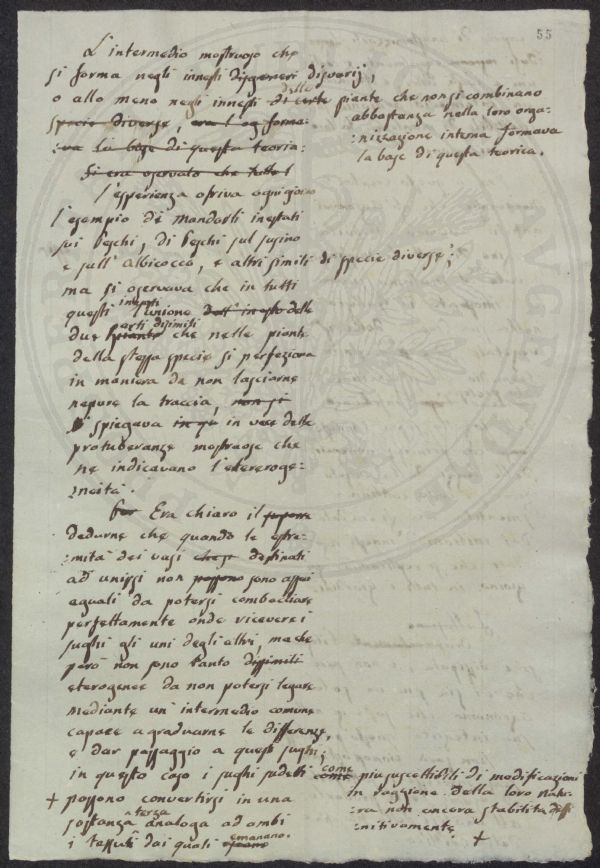 55
L'intermedio mostruoso che
si forma negli innesti disgeneri disvarij,
o allo meno negli innesti di certe delle piante che non si combinano
abbastanza nella loro orga=
=nizzazione interna formava
la base di questa teorica.
specie diverse, era l' forma=
=va la base di questa teoria:
Si era osservato che tutto l
l'esperienza offriva ogni giorno
l'esempio di mandorli inestati
sui Peschi, di Peschi sul susino
e sull'Albicocco, e altri simili di specie diverse;
ma si osservava che in tutti
questi inesti l'unione dell'inesto delle
due piante parti disimili che nelle piante
della stessa specie si perfeziona
in maniera da non lasciarne
nepure la traccia, non si
spiegava in vece delle
protuberanze mostruose che
ne indicavano l'etereroge=
=neità.
Era chiaro il
dedurne che quando le estre=
=mità dei vasi che si destinati
ad unirsi non possono sono assai
eguali da potersi combaciare
perfettamente onde ricevere i
sughi gli uni degli altri, ma che
però non sono tanto dissimili
eterogenee da non potersi legare
mediante un'intermedio comune
capace a graduarne le differenze,
e dar passaggio a questi sughi;
in questo caso i sughi sudetti come come più suscettibili di modificazioni
in raggione della loro natu=
=ra non ancora stabilita diffi
=nitivamente +
+ possono convertirsi in una
sostanza terza analoga ad ambi
i tessuti dai quali emanano.